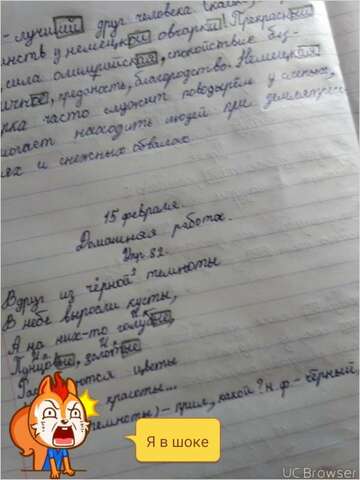 лучший друг человека
у немецкой овчарки! Прекрасный
сила олимпийская, спокойствие без-
преданость, благородство. Немецкая
часто служит поводырём у слепых,
помогает находить людей при землетрясе-
ях и снежных обвалах
15 февраля.
Домашняя работа.
Упр. 82.
Вдруг из чёрной темноты
В небе выросли кусты,
А на них-то голубые,
Пунцовые, золотые
цветы
красоты...
темноты) - прил., какой? н.ф. - чёрный
Я в шоке
UC Browser